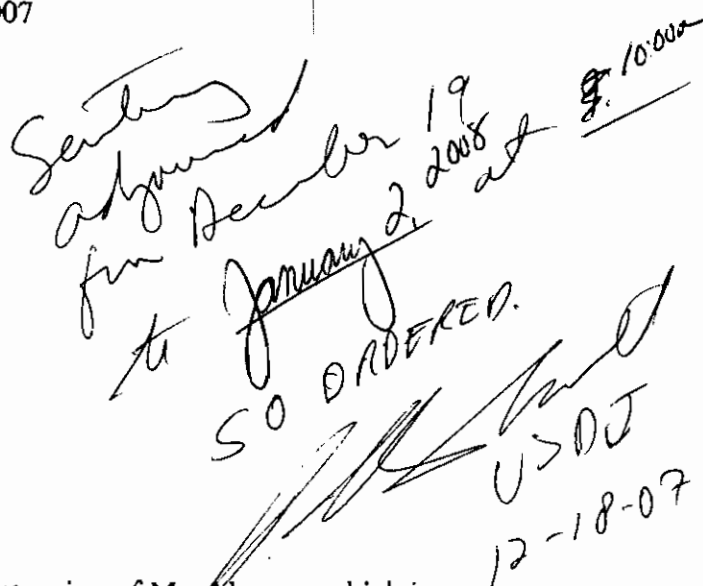 007
Sentencing
adjourned
from December 19
to January 2, 2008 at 10:00am
SO ORDERED.
USDJ
12-18-07